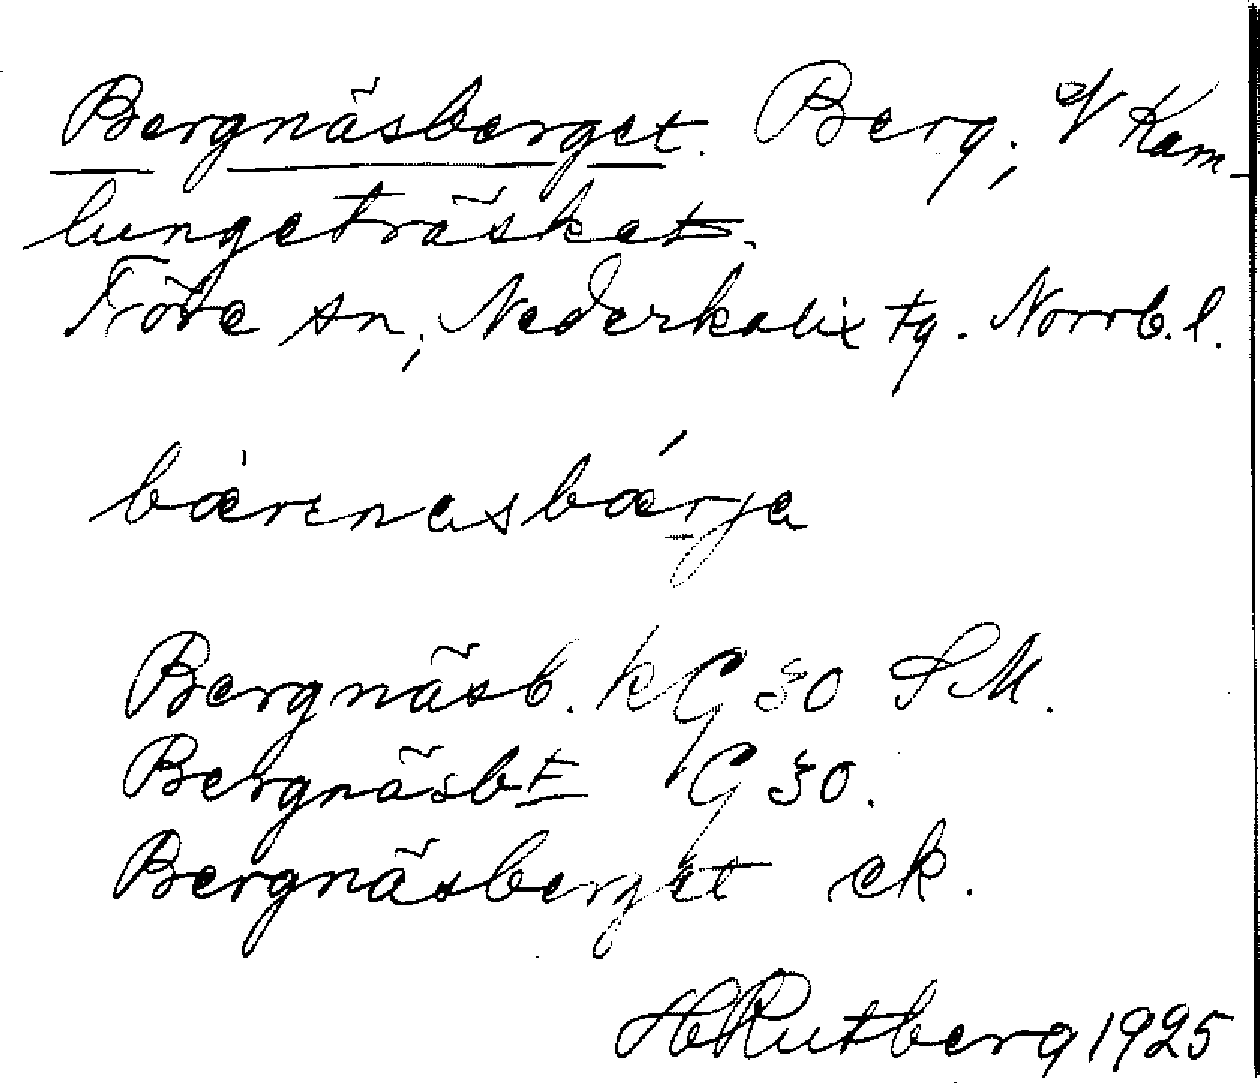 Bergnäsberget. Berg, V Kam-
lungeträsket.
Töre sn, Nederkalix tg. Norrb. l.
bærɛnasbærja
Bergnäsb. k G 30 S.M.
Bergnäsbt G 30.
Bergnäsberget ek.
H Rutberg 1925